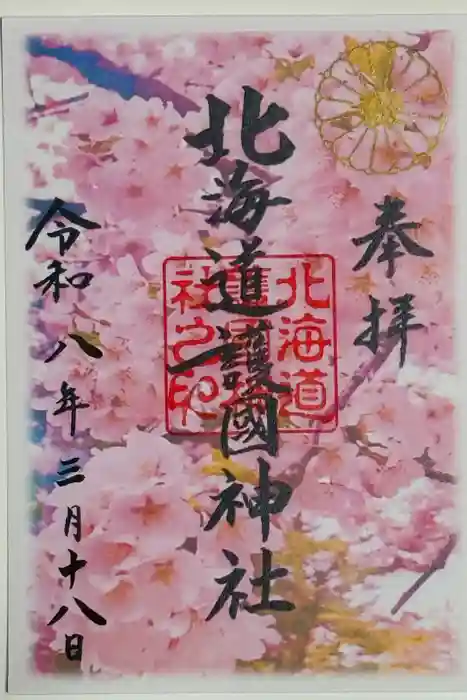 奉拝
北海道護國神社
北海道
護國神
社之印
令和八年三月十八日